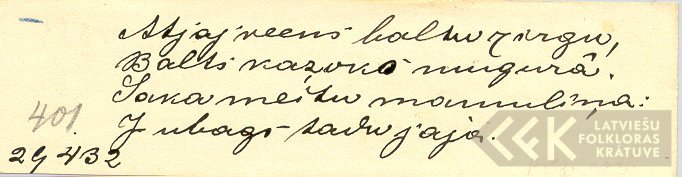 Atjaj veens baltu zirgu,
Balts kazoks mugurâ.
Saka meitu mamuliņa:
I ubags tadu jaja.
401
29432
LATVIEŠU
FOLKLORAS
KRĀTUVE